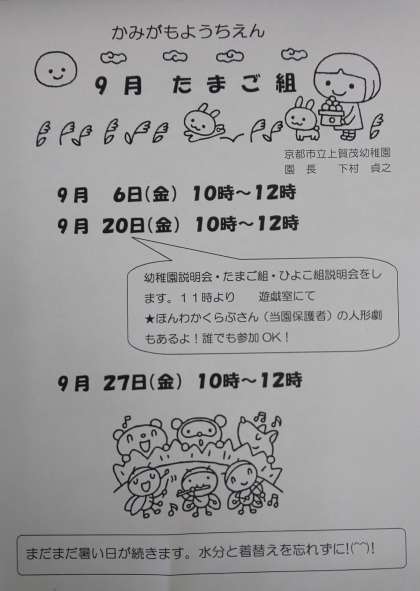 かみがもようちえん
9月 たまご組
京都市立上賀茂幼稚園
園 長 下村 貞之
9月 6日(金) 10時～12時
9月 20日(金) 10時～12時
幼稚園説明会・たまご組・ひよこ組説明会をし
ます。11時より 遊戯室にて
★ほんわかくらぶさん（当園保護者）の人形劇
もあるよ！誰でも参加OK！
9月 27日(金) 10時～12時
まだまだ暑い日が続きます。水分と着替えを忘れずに!(^^)!